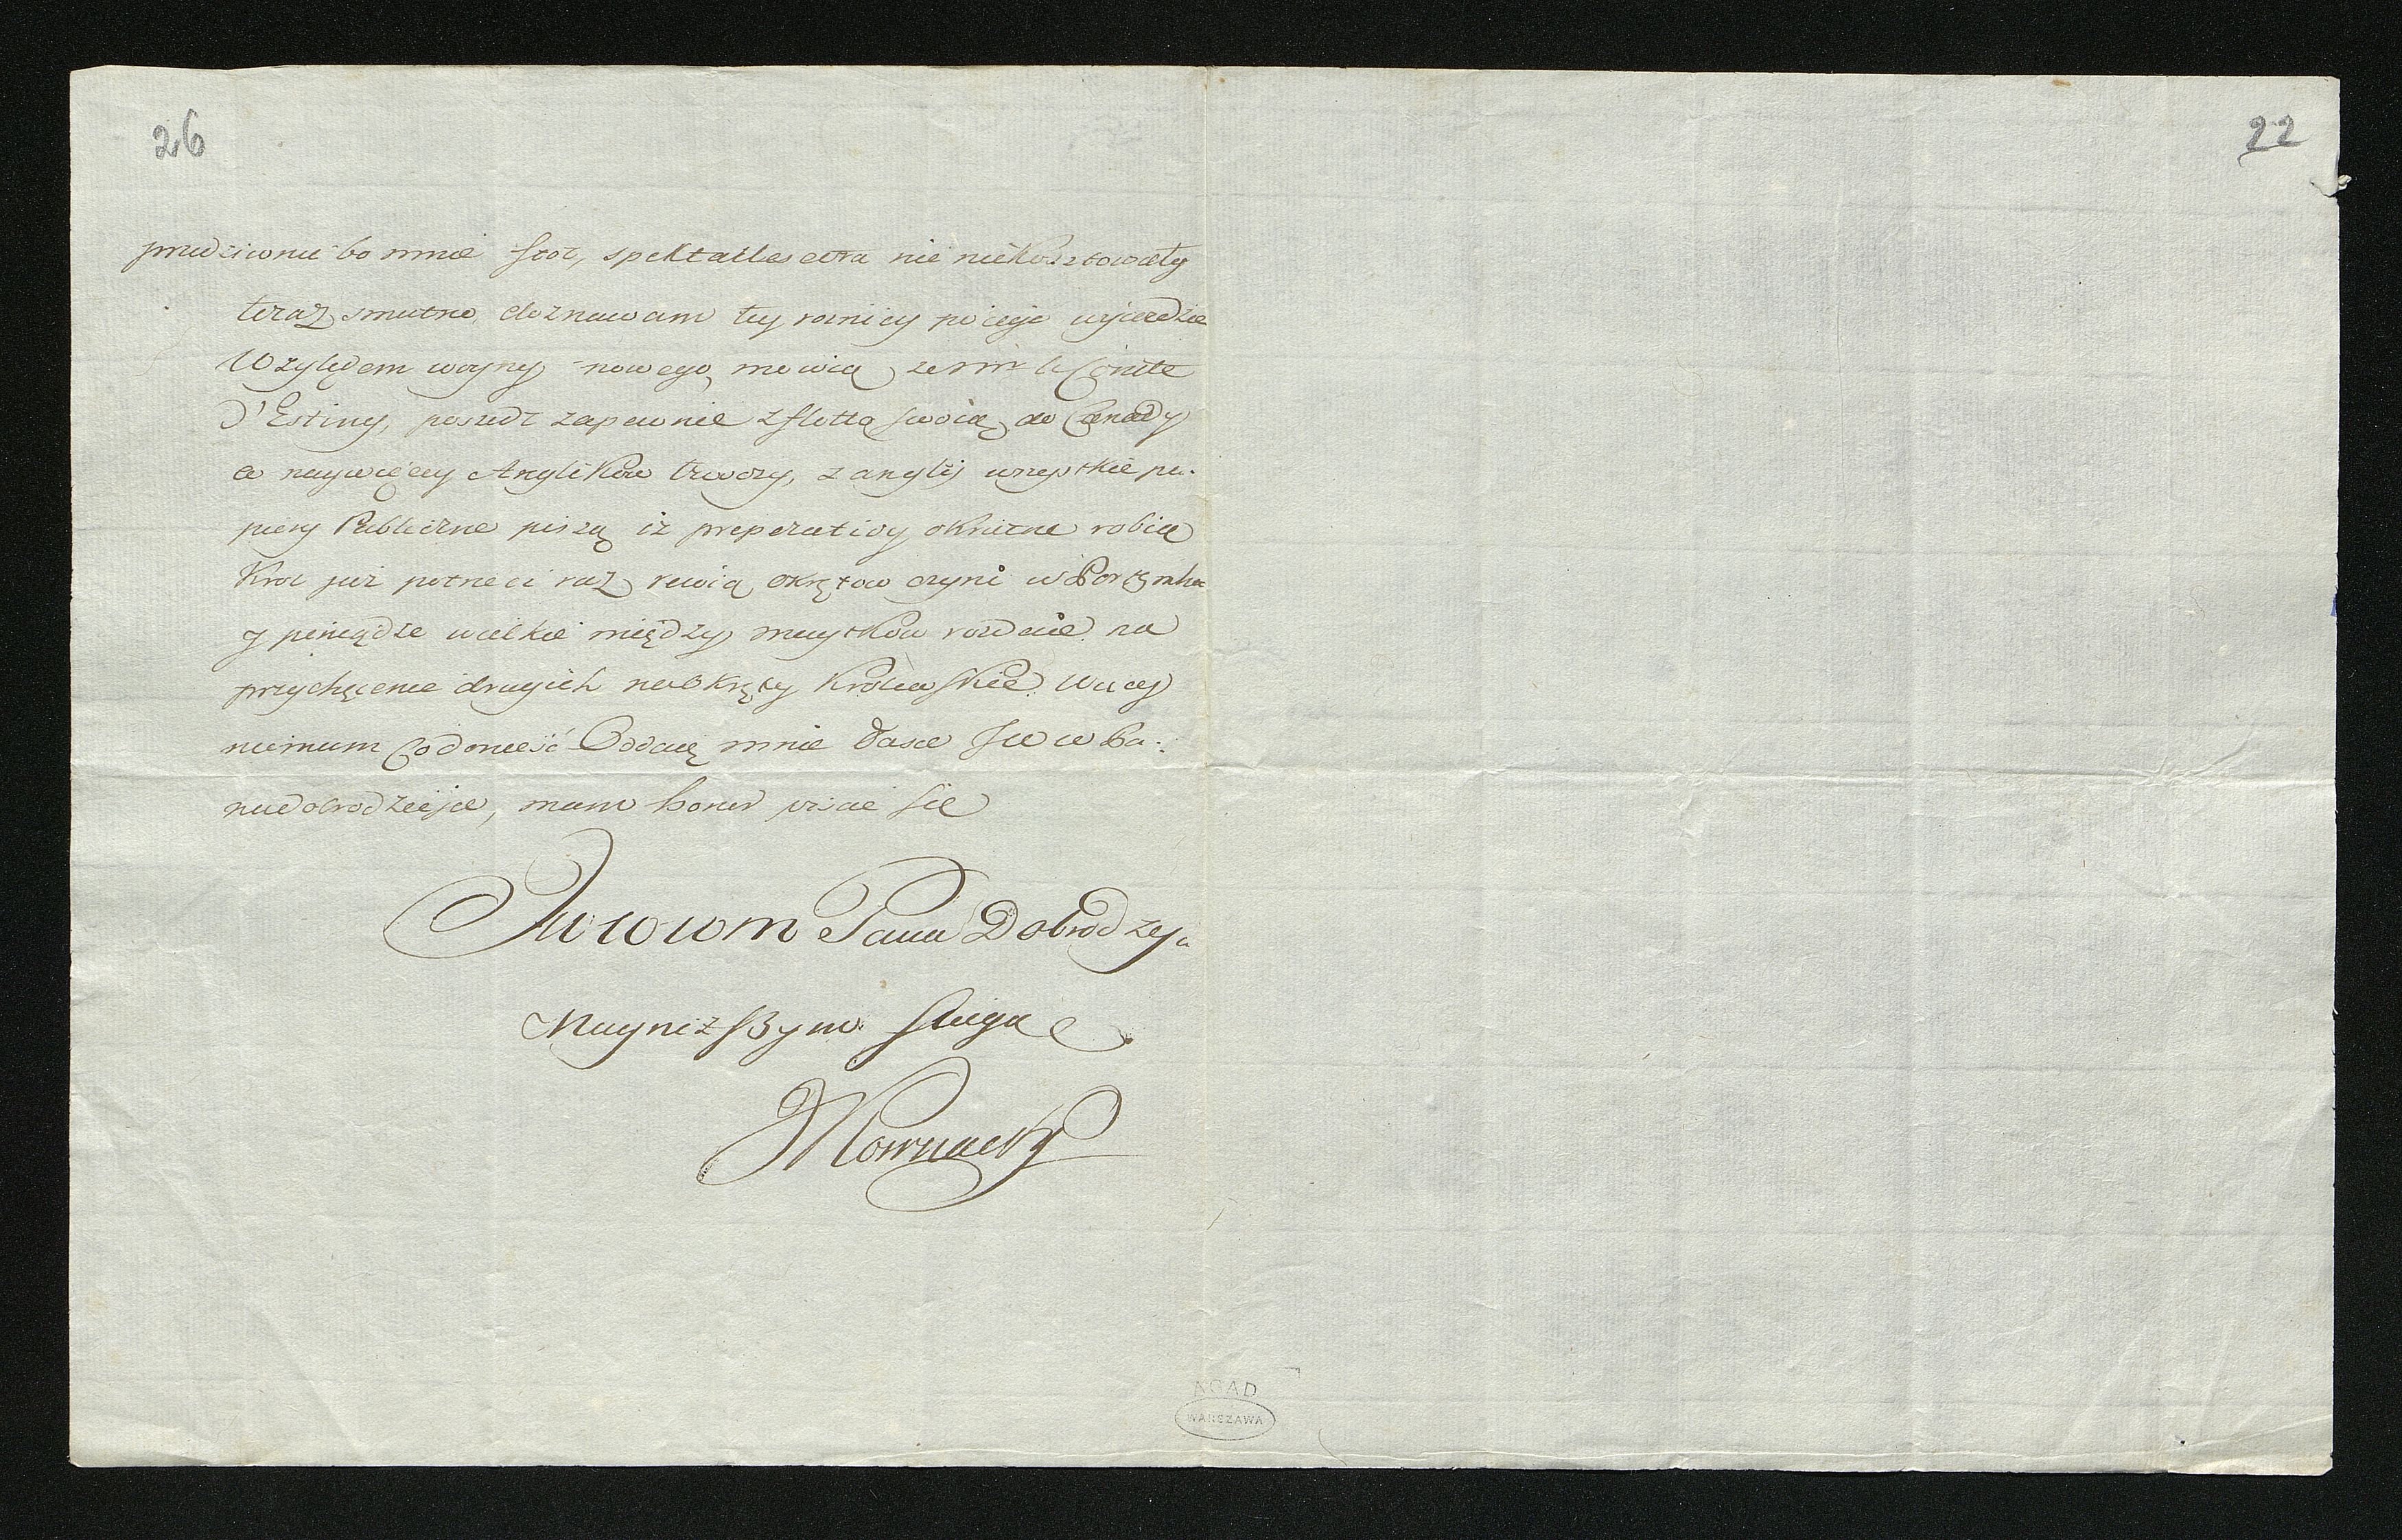 26
22
bo mnie stoł, spektakle etra nie niekosztowały
teraz smutno doznawam tey rornicy po iego wyiezdzie
Względem woyny nowego mowią ze Mr le Comte
D'Esting, poszedł zapewnie z flottą swoią do Canady
co naywięcey Anglikow trwozy, z anglij wszystkie pa-
piery Publiczne piszą iz preperativy okrutne robią
Krol już potrzeci raz rewią okrętow czyni w Portzmhu
y pieniądze wielkie między maytkow rozdaie na
przychęcenie drugich na Okręty Krolewskie. Wiecey
niemam co donieść Oddaię mnie łasce Jw w Pa-
na dobrodzieja, mam honor pisać się
Jw w wm Pana Dobrodzeja
Nayniższym sługą
AGAD
WARSZAWA